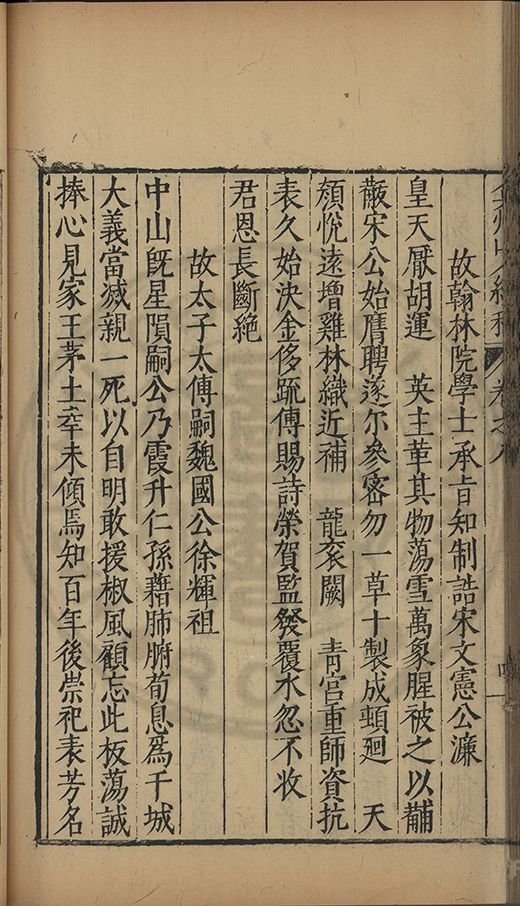 卷之八
故翰林院學士承旨知制誥宋文憲公濂
皇天厭胡運 英主革其物蕩雪萬象腥被之以黼
黻宋公始膺聘遂尔參密勿一草十製成頓廻 天
頟悅遠增雞林織近補 龍衮闕 靑宮重師資抗
表久始決金侈䟽傅賜詩榮賀監發覆水忽不收
君恩長斷絶
故太子太傅嗣魏國公徐輝祖
中山旣星隕嗣公乃霞升仁孫藉肺腑荀息爲干城
大義當滅親一死以自明敢援椒風顧忘此板蕩誠
捧心見家王茅土幸未傾焉知百年後崇祀表芳名